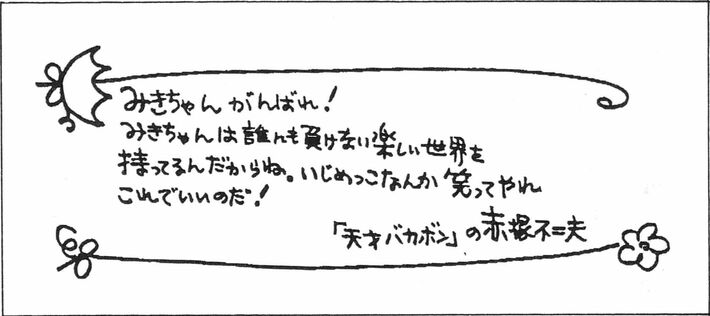 みきちゃんがんばれ！
みきちゃんは誰にも負けない楽しい世界を
持ってるんだからね。いじめっこなんか笑ってやれ
これでいいのだ！
「天才バカボン」の赤塚不二夫